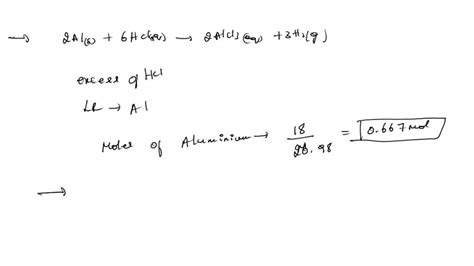 → 2Al(s) + 6HCl(aq) → 2AlCl3(aq) + 3H2(g)
excess of HCl
LR → Al
Moles of Aluminium → 18 / 26.98 = 0.667 mol
→